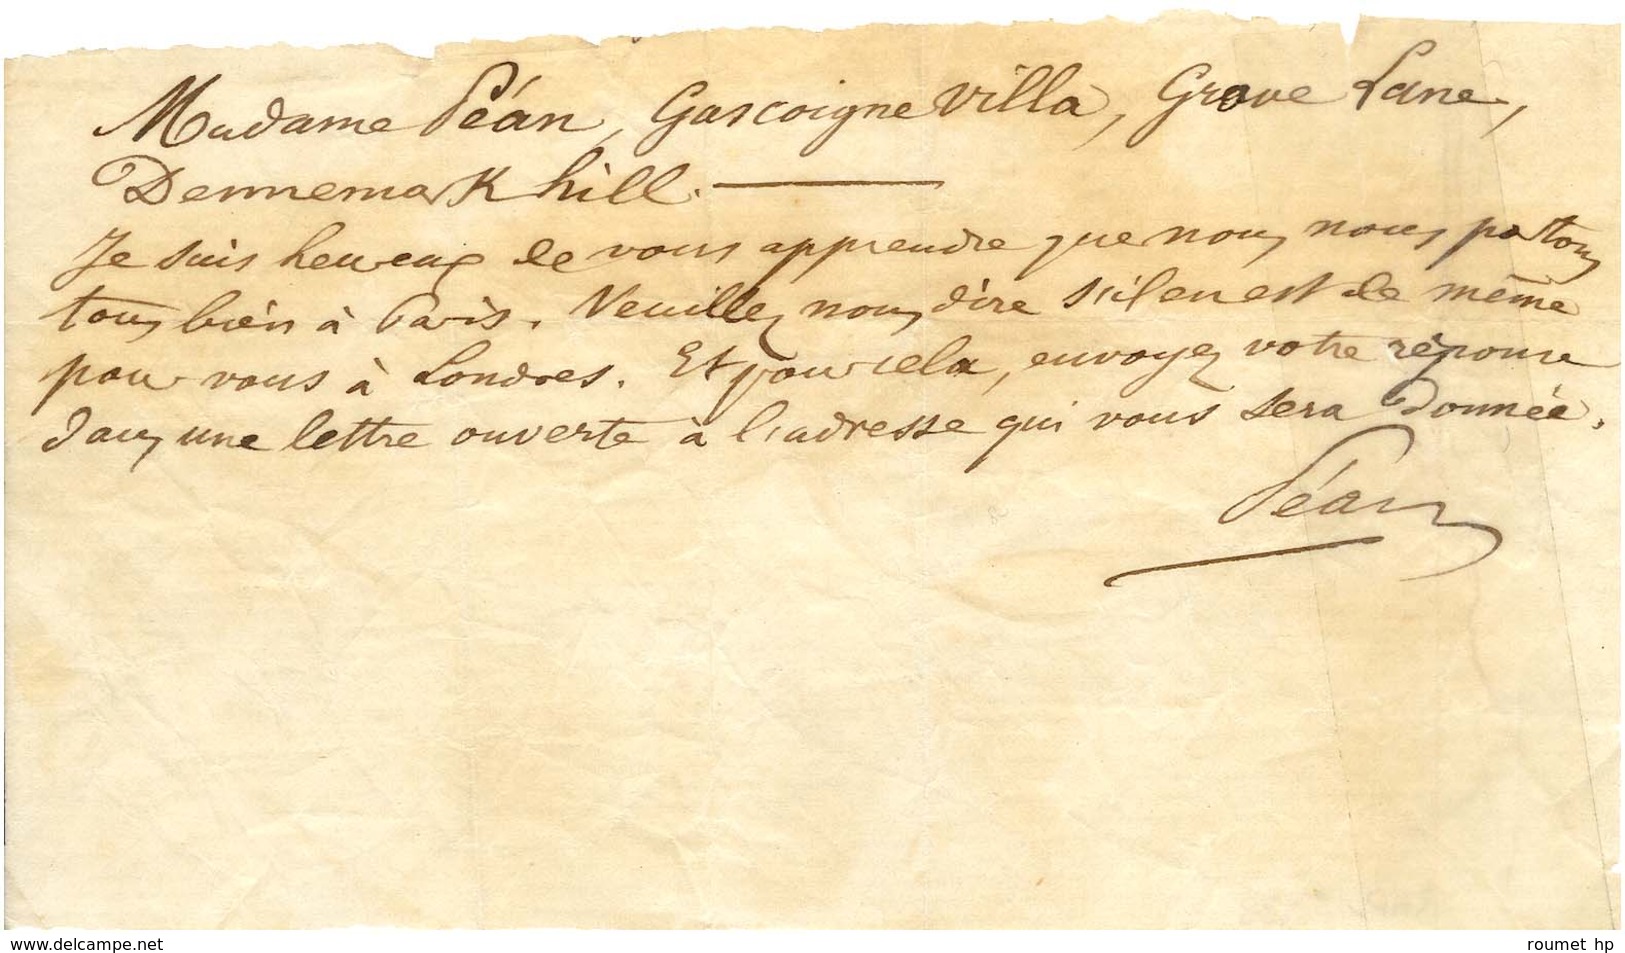 Madame Péan, Gascoigne Villa, Grove Lane,
Dennemark hill. —
Je suis heureux de vous apprendre que nous nous portons
tous bien à Paris. Veuillez nous dire s'il en est de même
pour vous à Londres. Et pour cela, envoyez votre réponse
dans une lettre ouverte à l'adresse qui vous sera donnée.
Péan
www.delcampe.net
roumet hp